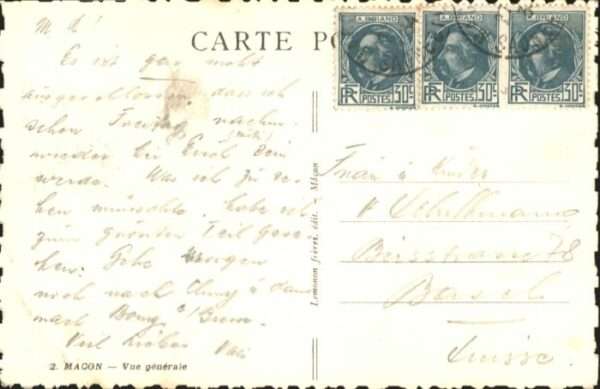 CARTE PO
A. BRIAND
A. BRIAND
A. BRIAND
RF POSTES 30c
RF POSTES 30c
RF POSTES 30c
Es ist gar nicht
ausgeschlossen, dass ich
schon Freitag nachm.
wieder bei Euch sein
werde. Was ich zu se-
hen wünschte, habe ich
zum Teil gese-
hen. Gehe morgen
noch nach Cluny & dann
nach Bourg
Viel Liebes
Frau &
78
Basel
Suisse.
Lemonon frères, édit. - Mâcon
2. MACON — Vue générale